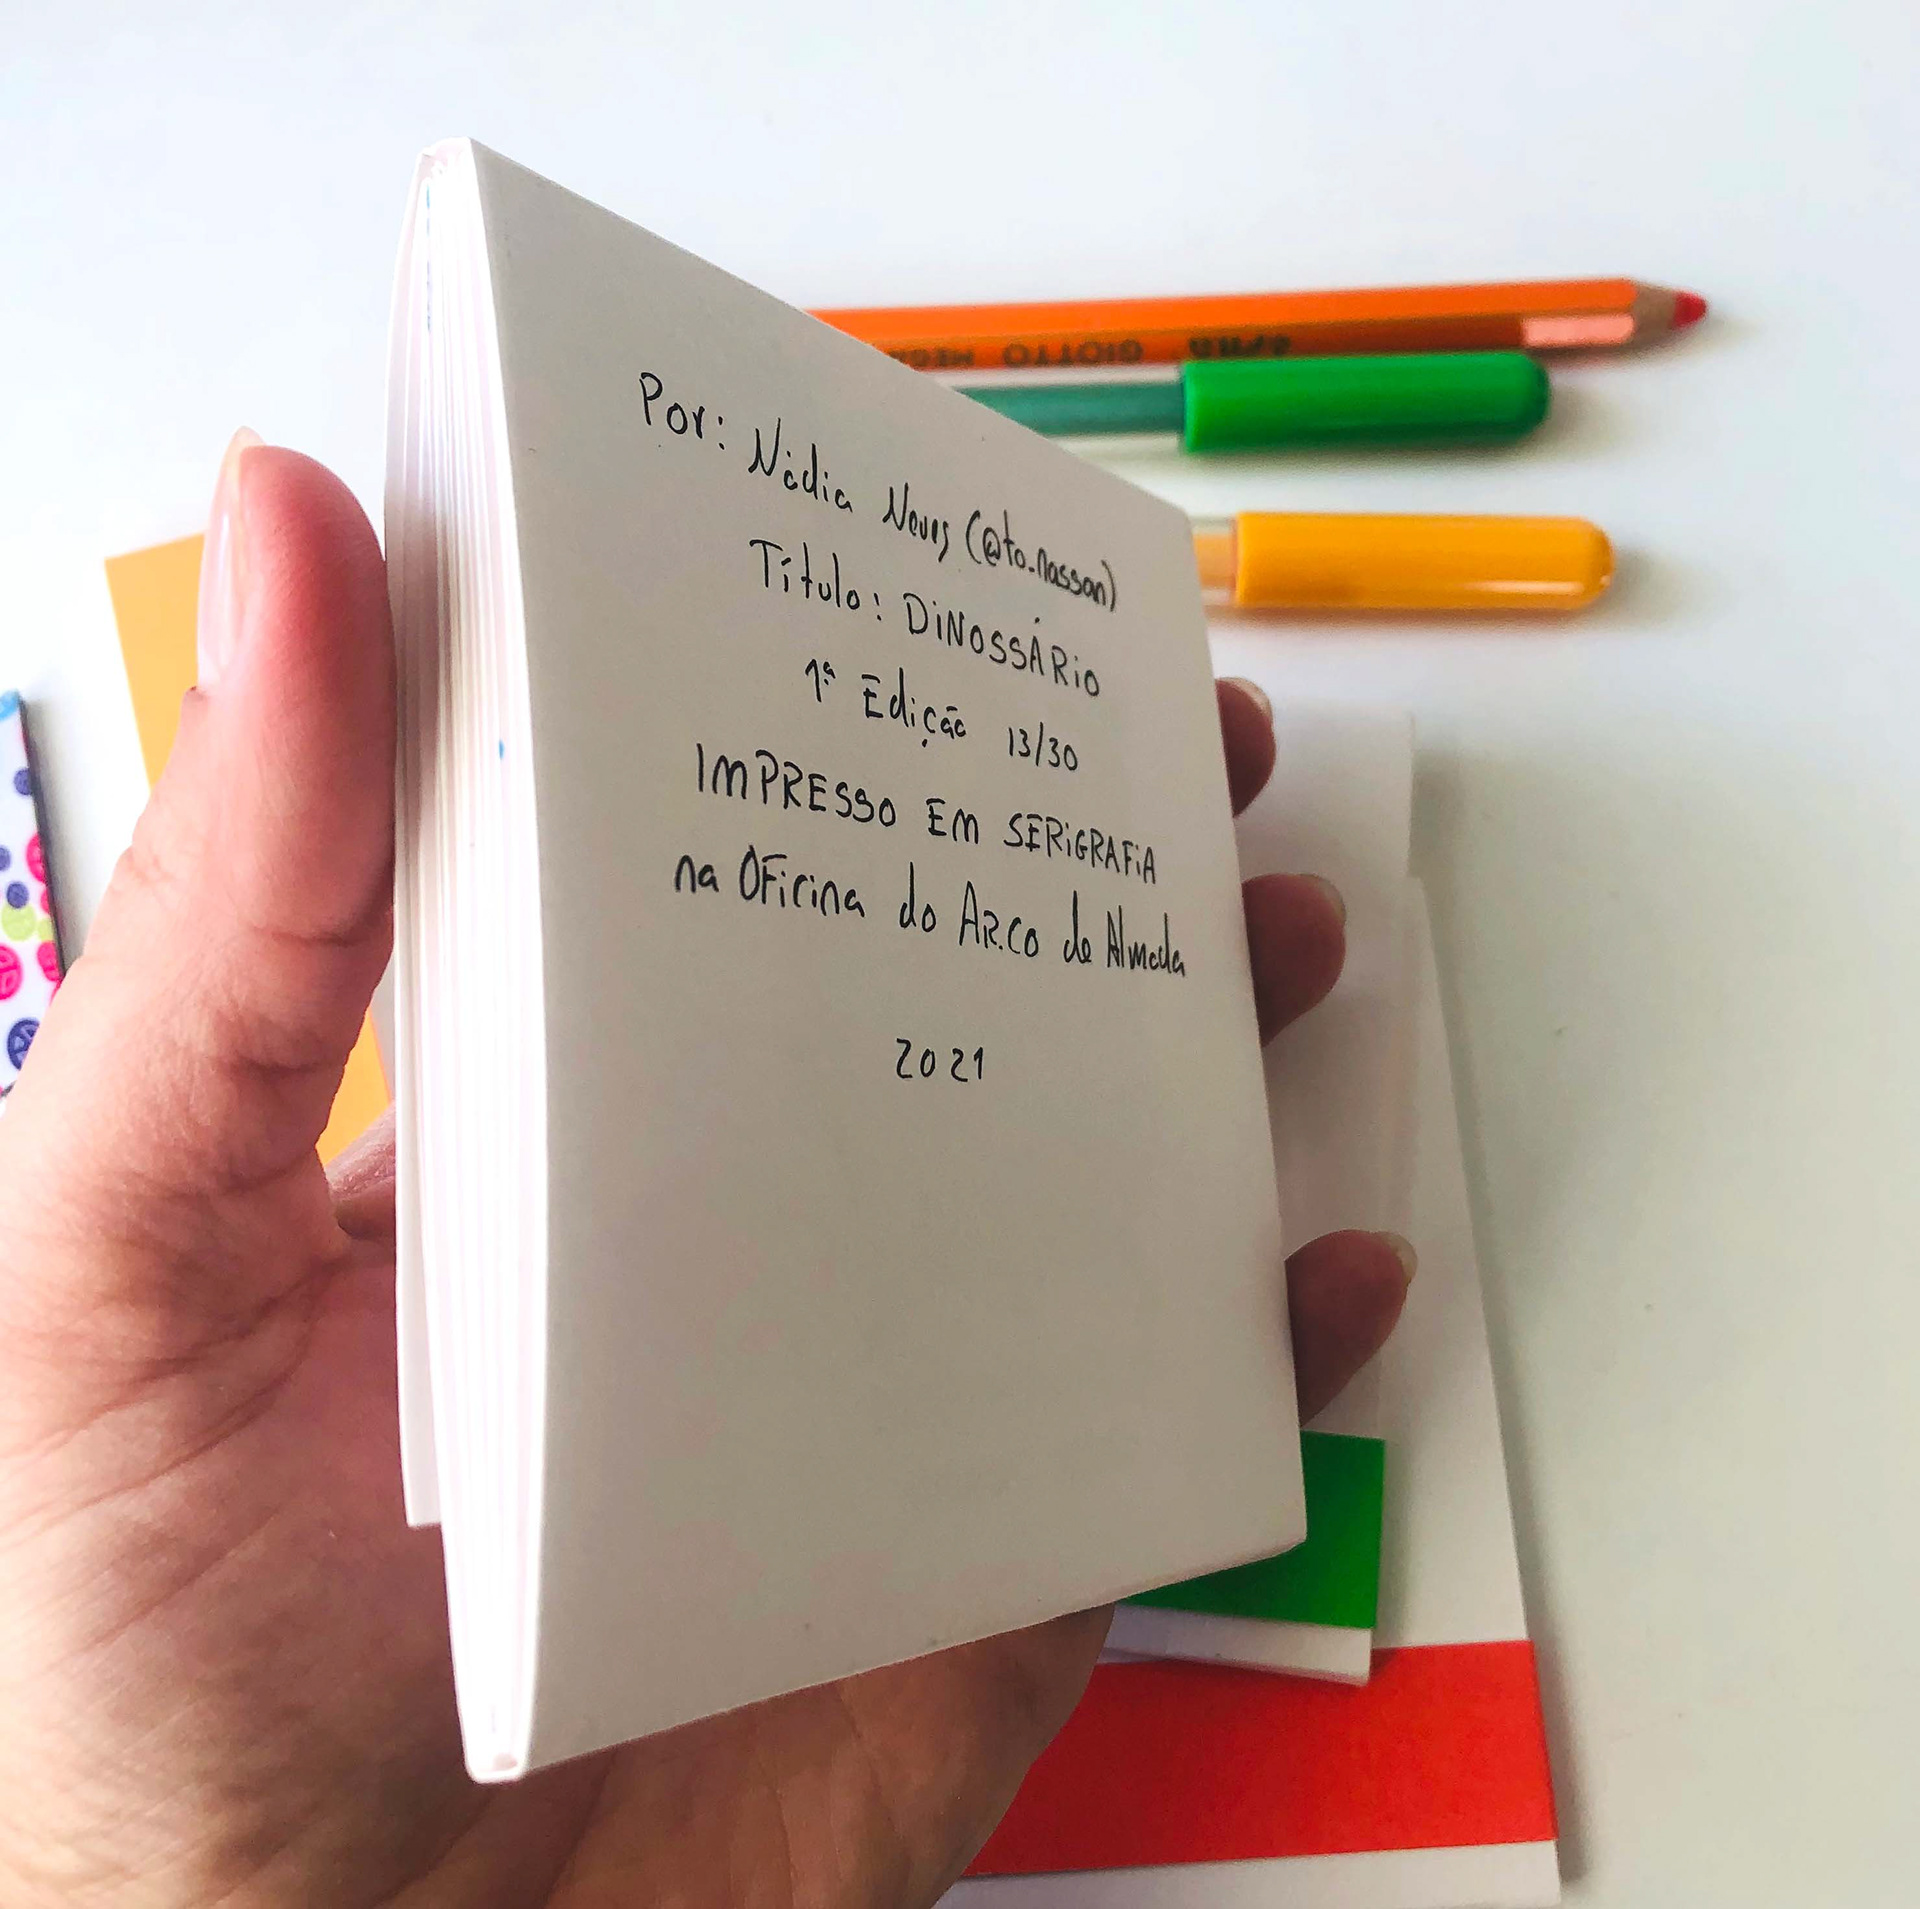 Por: Nádia Neves (@to.nassan)
Título: DiNOSSÁRio
1ª Edição 13/30
IMPRESSO EM SERiGRAFiA
na OFicina do AR.CO de Almada
2021
GIOTTO MEGA